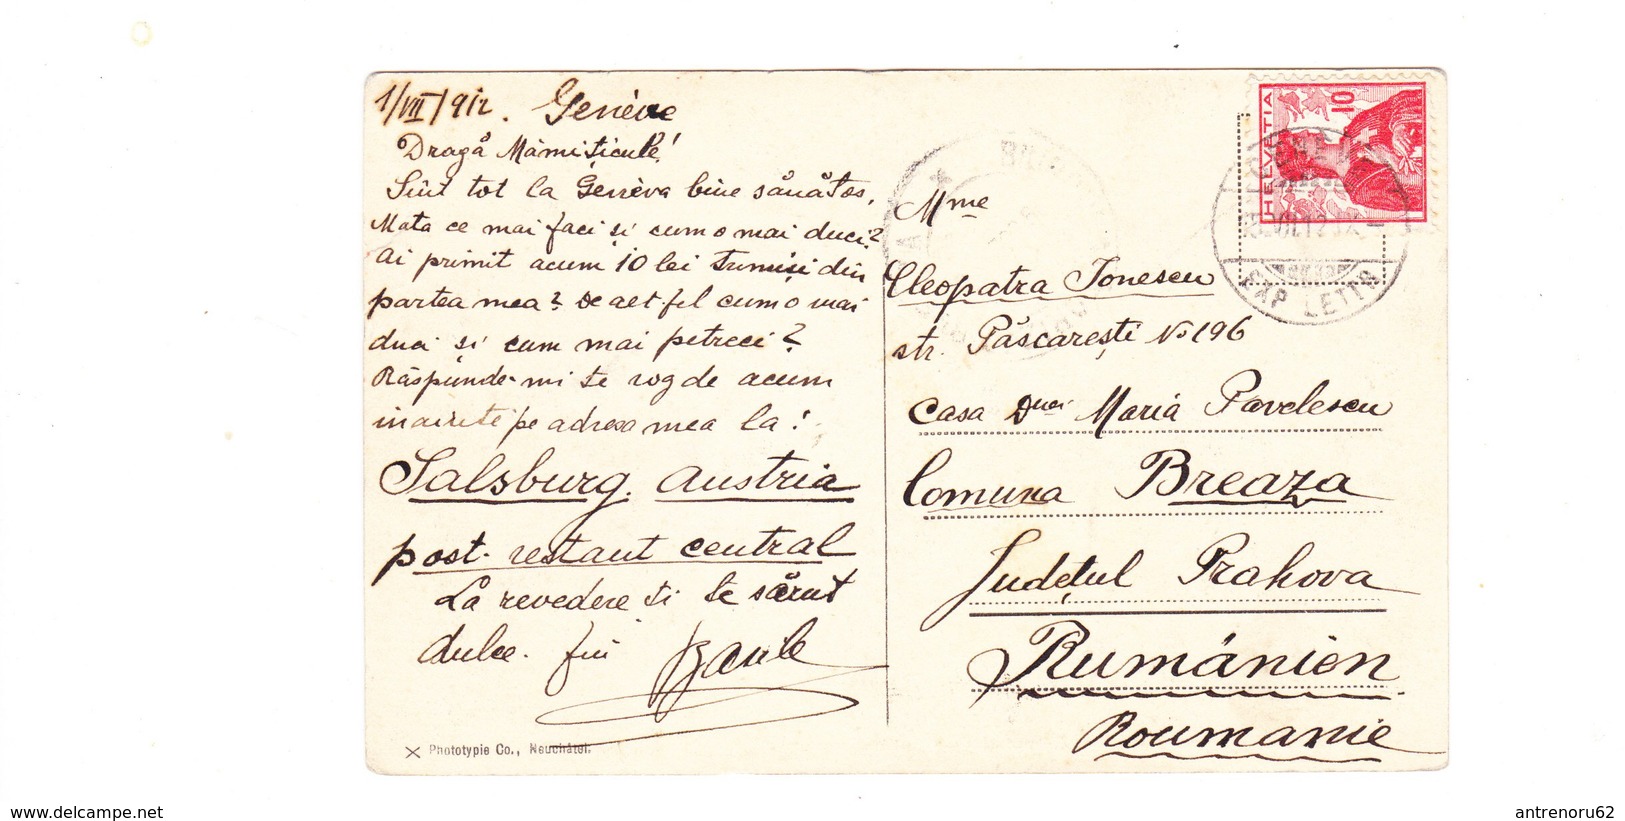 1/VII/912. Genève
Dragă Mămițicule!
Sînt tot la Genèva bine sănătos,
Mata ce mai faci și cum o mai duci?
ai primit acum 10 lei trimiși din
partea mea? De alt fel cum o mai
duci și cum mai petreci?
Răspunde-mi te rog de acum
inainte pe adresa mea la!
Salsburg. Austria
post-restant central
La revedere și te sărut
dulce. fiu
Phototypie Co., Neuchâtel.
HELVETIA
10
EXP. LETTR
Mme
Cleopatra Ionescu
str. Păscarești No 196
Casa Dnei Maria Pavelescu
Comuna Breaza
Județul Prahova
Rumänien
Roumanie
www.delcampe.net
antrenoru62